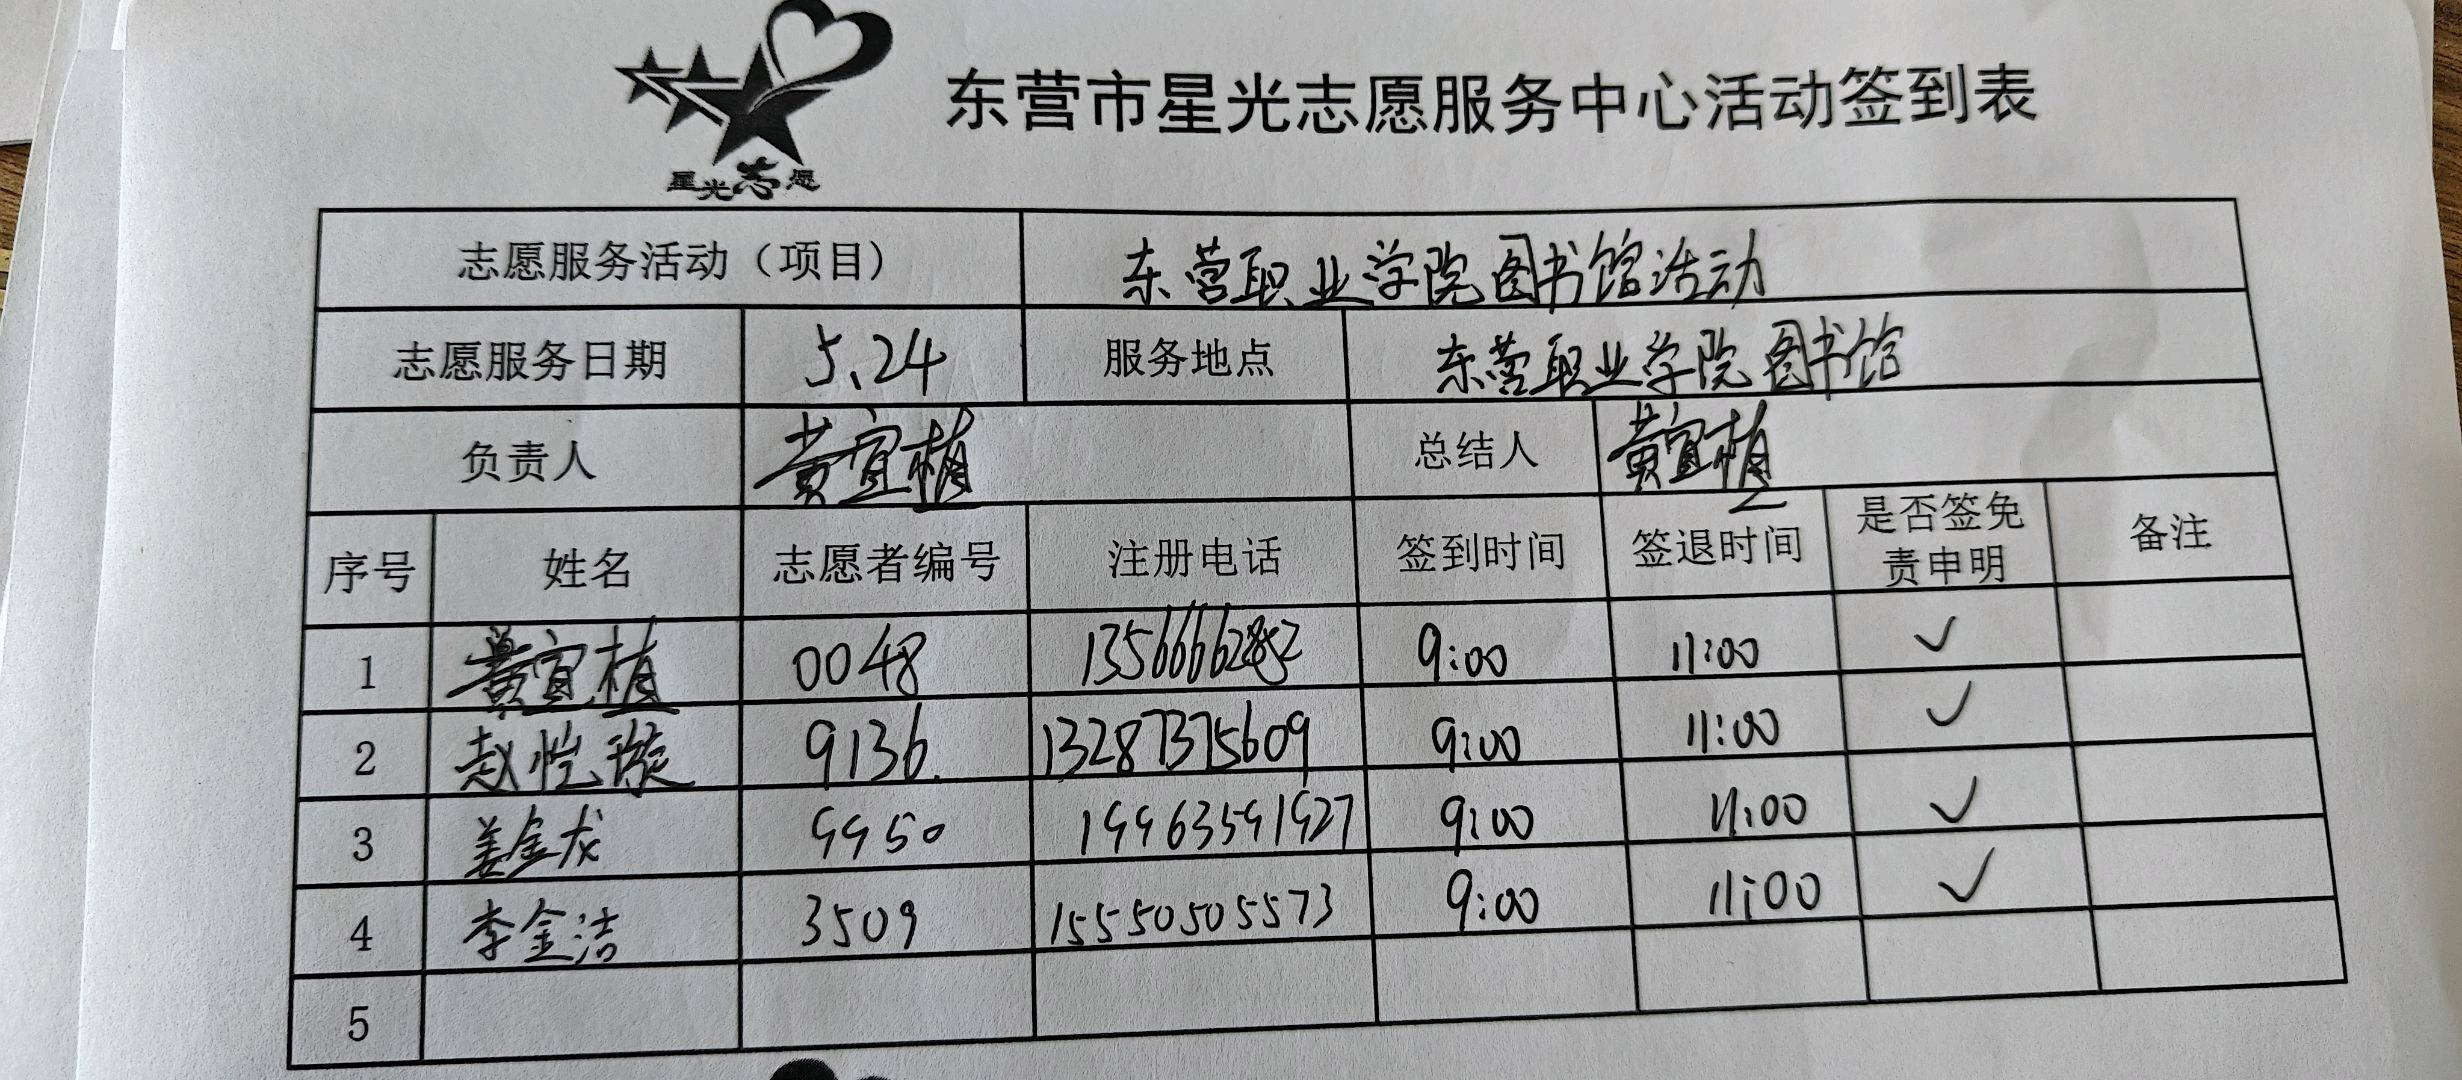 东营市星光志愿服务中心活动签到表
星光志愿
志愿服务活动（项目） 东营职业学院图书馆活动
志愿服务日期 5.24 服务地点 东营职业学院图书馆
负责人 黄宜植 总结人 黄宜植
序号 姓名 志愿者编号 注册电话 签到时间 签退时间 是否签免责申明 备注
1 黄宜植 0048 9:00 11:00 ✓
2 赵恺璇 9136 13287375609 9:00 11:00 ✓
3 姜金龙 9950 19963591927 9:00 11:00 ✓
4 李金洁 3509 15550505573 9:00 11:00 ✓
5